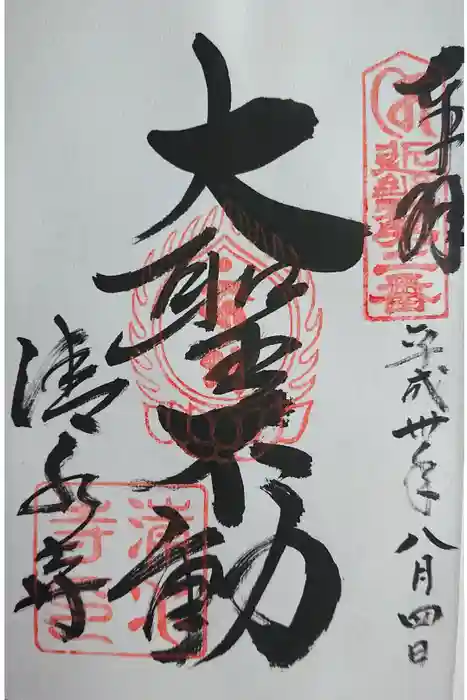 奉拝
近畿第二番
平成卅年八月四日
大聖不動
清水寺
清水
寺印